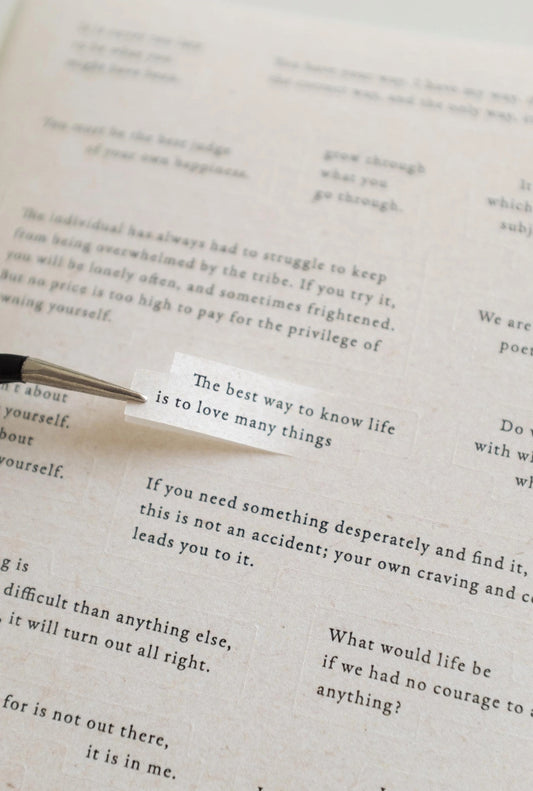 It is never too late
to be what you
might have been.
You have your way. I have my way.
the correct way, and the only way,
You must be the best judge
of your own happiness.
grow through
what you
go through.
It
which
subj
The individual has always had to struggle to keep
from being overwhelmed by the tribe. If you try it,
you will be lonely often, and sometimes frightened.
But no price is too high to pay for the privilege of
owning yourself.
We are
poet
The best way to know life
is to love many things
n't about
yourself.
bout
yourself.
Do
with wh
wh
If you need something desperately and find it,
this is not an accident; your own craving and c
leads you to it.
g is
difficult than anything else,
, it will turn out all right.
What would life be
if we had no courage to a
anything?
for is not out there,
it is in me.